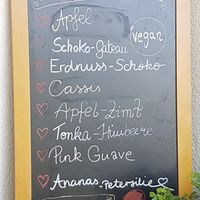 Apfel
vegan
Schoko-Gateau
Erdnuss-Schoko
Cassis
Apfel-Zimt
Tonka-Himbeere
Pink Guave
Ananas-Petersilie